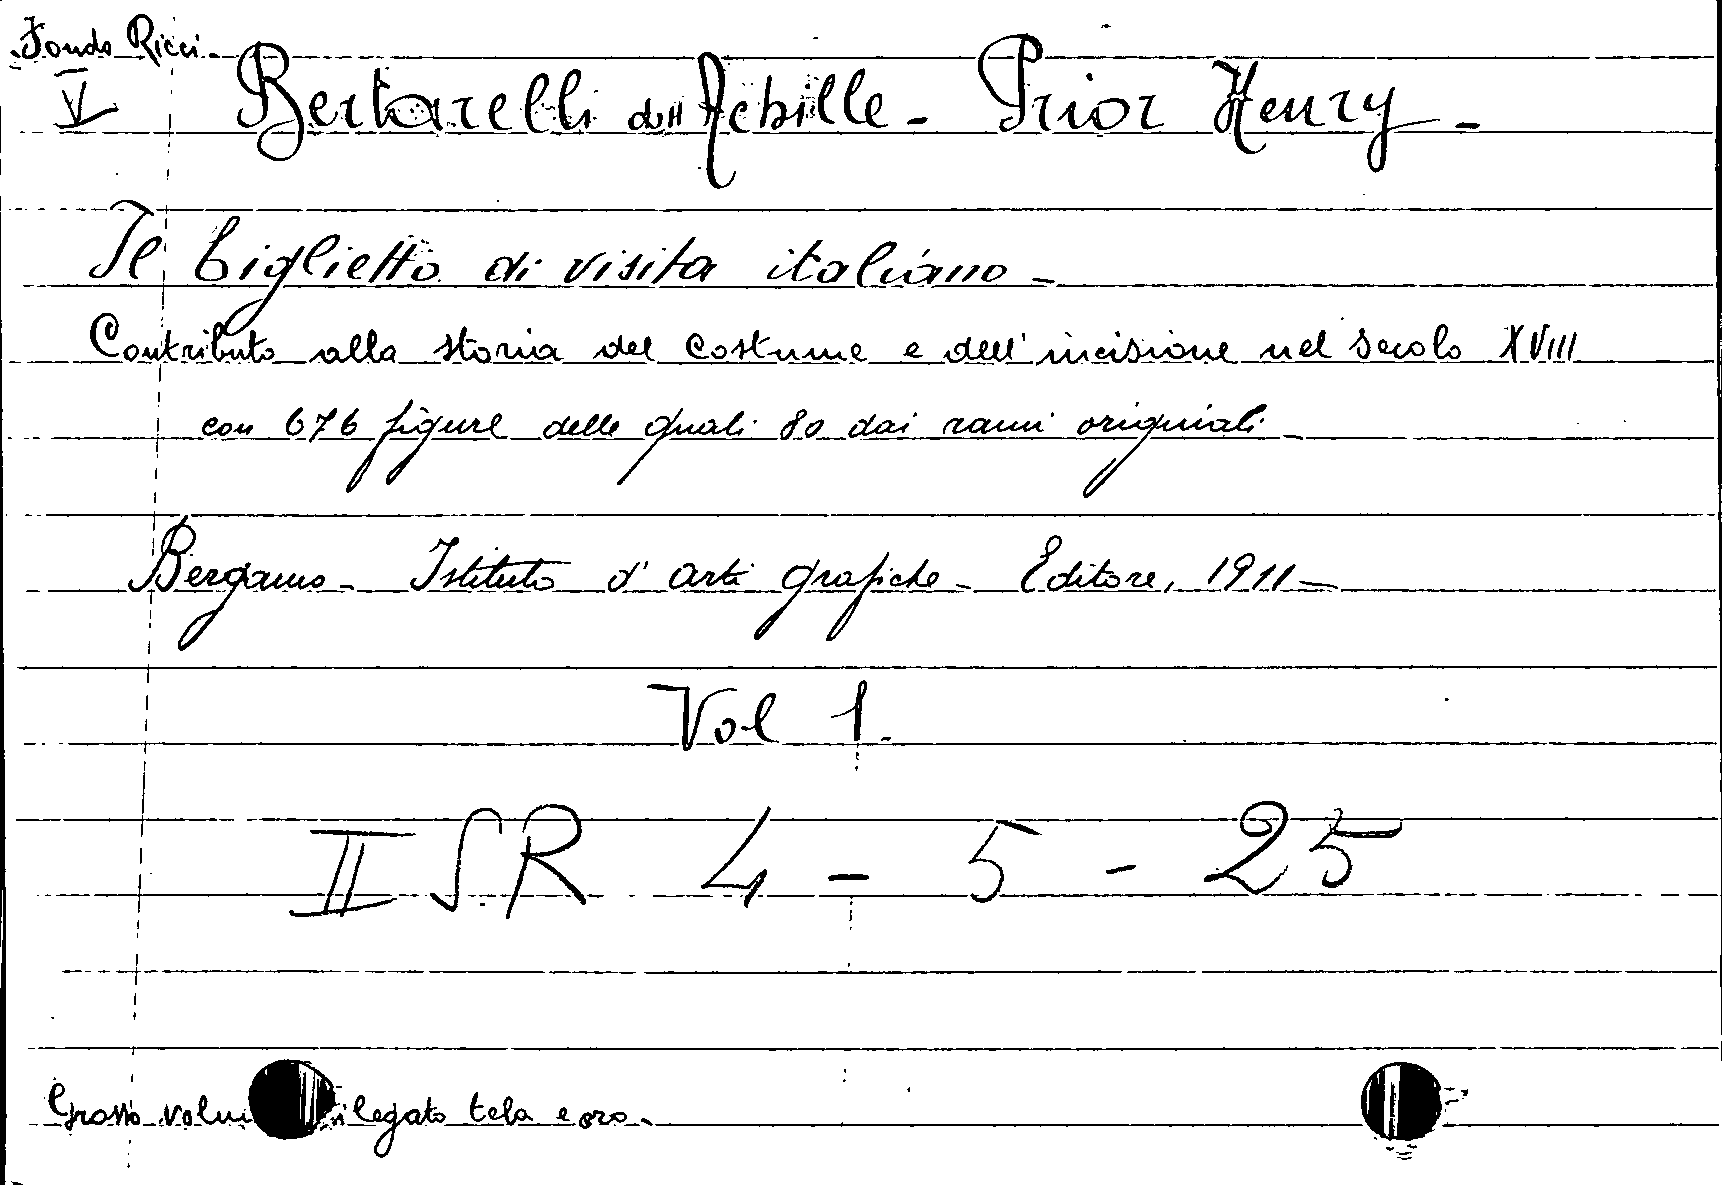 Fondo Ricci.
V Bertarelli dott Achille - Prior Henry -
Il biglietto di visita italiano -
Contributo alla storia del costume e dell'incisione nel secolo XVIII
con 676 figure delle quali 80 dai rami originali -
Bergamo - Istituto d'arti grafiche - Editore, 1911 -
Vol 1.
II SR 4 - 5 - 25
Grosso rilegato tela e oro.